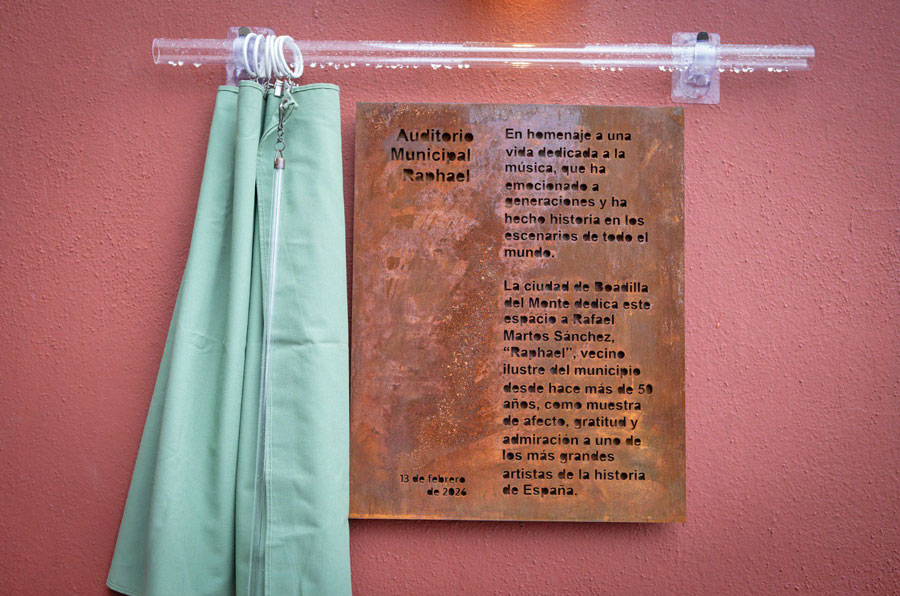 Auditorio
Municipal
Raphael
En homenaje a una
vida dedicada a la
música, que ha
emocionado a
generaciones y ha
hecho historia en los
escenarios de todo el
mundo.
La ciudad de Boadilla
del Monte dedica este
espacio a Rafael
Martos Sánchez,
“Raphael”, vecino
ilustre del municipio
desde hace más de 50
años, como muestra
de afecto, gratitud y
admiración a uno de
los más grandes
artistas de la historia
de España.
13 de febrero
de 2026